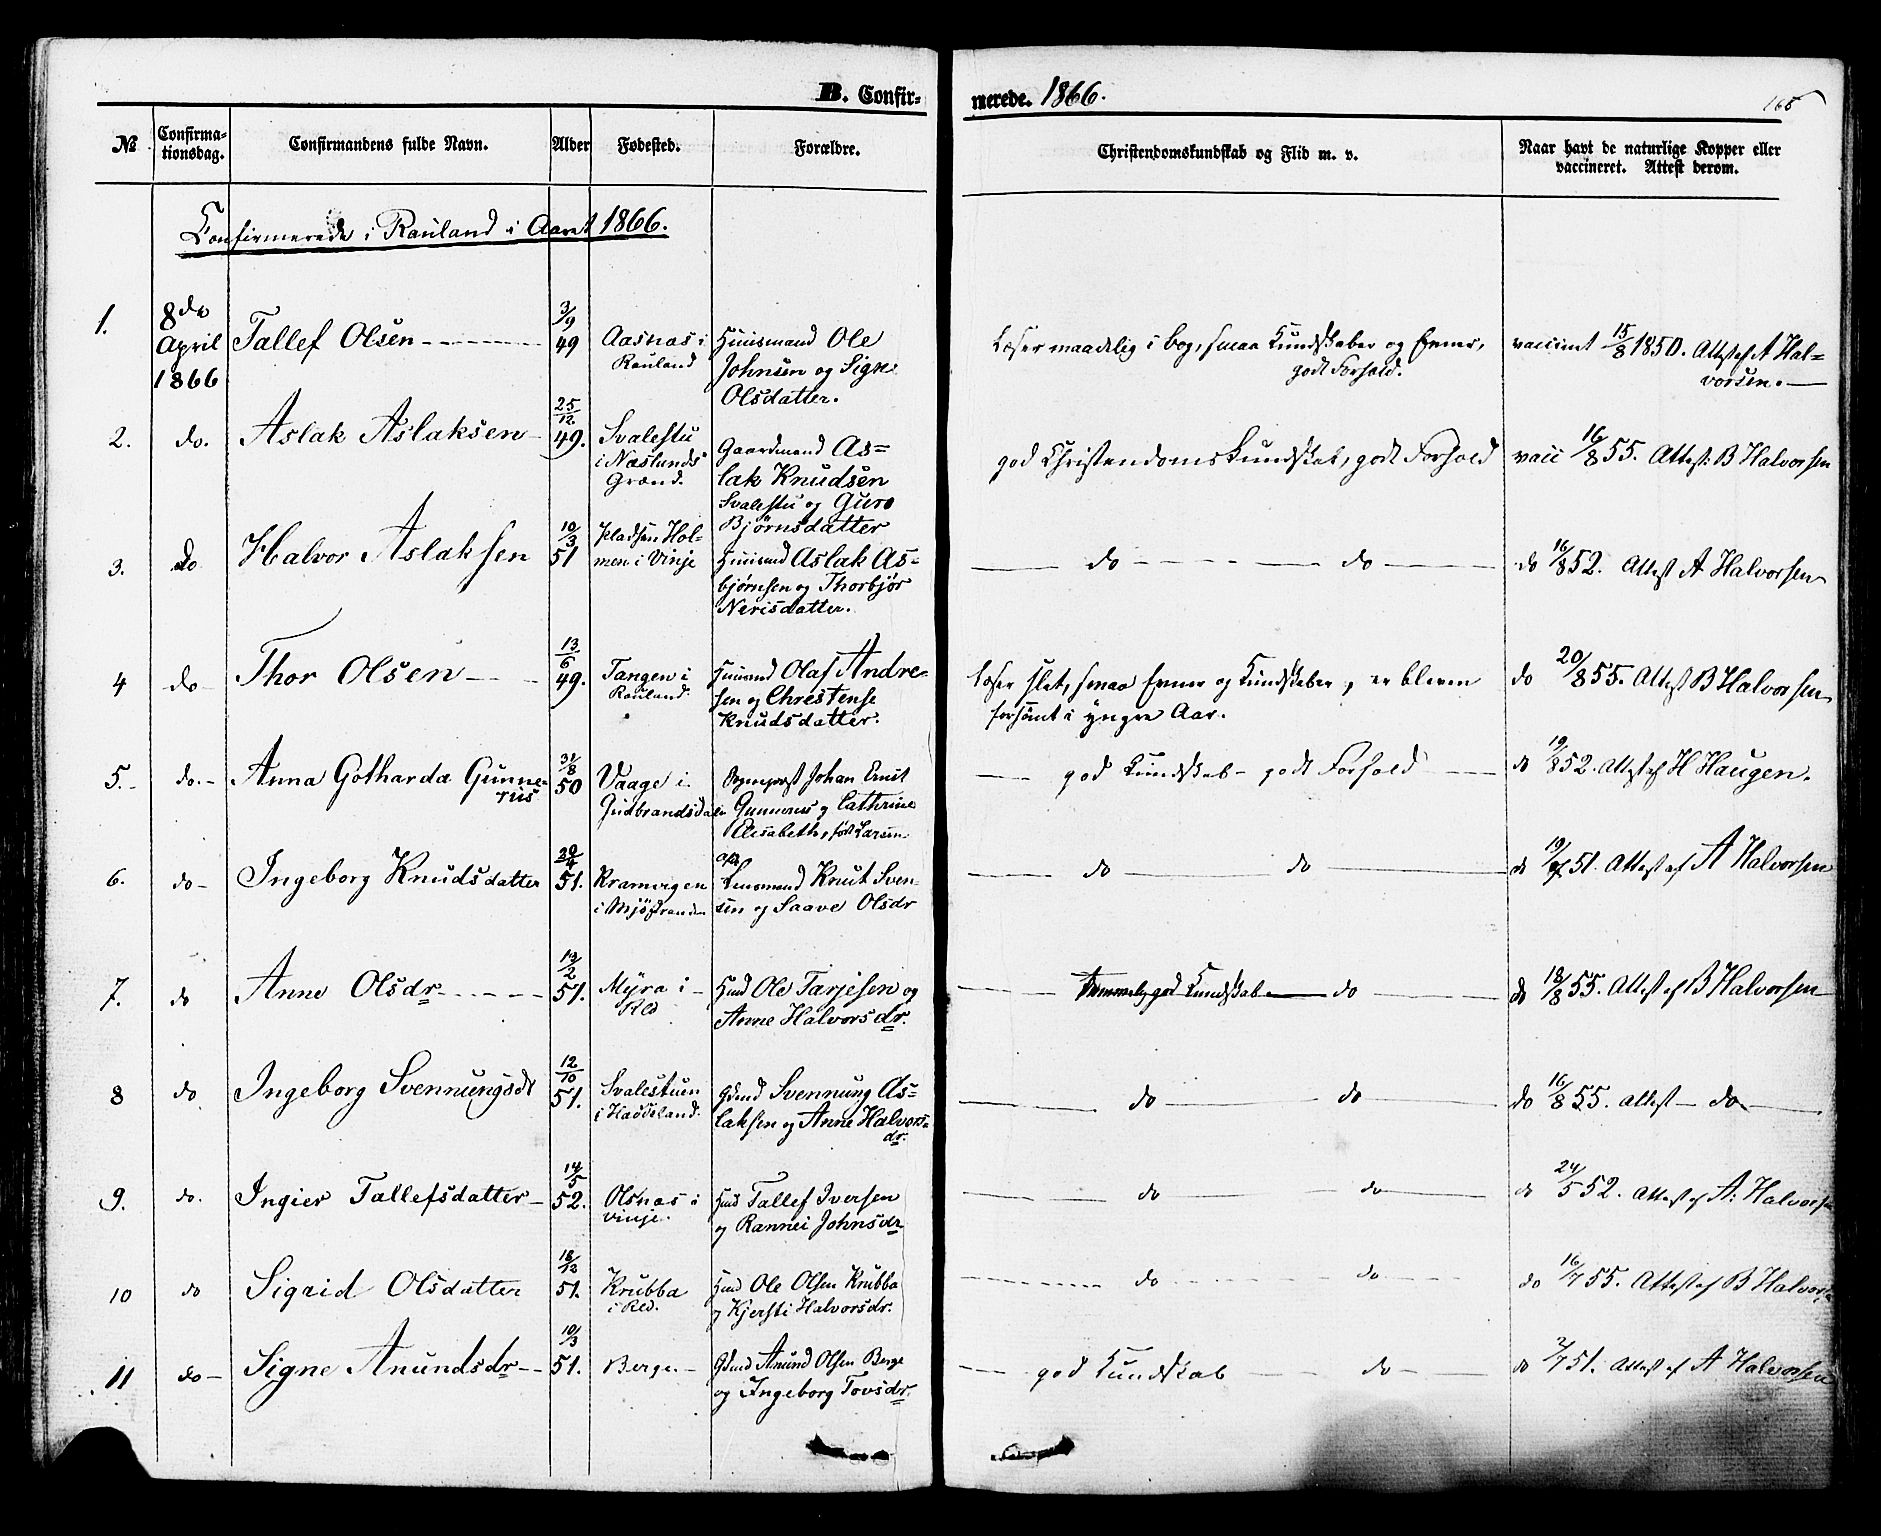 B. Confir-
merede. 1866.
No Confirma-tionsdag. Confirmandens fulde Navn. Alder Fødested. Forældre. Christendomskundskab og Flid m. v. Naar havt de naturlige Kopper eller vaccineret. Attest derom.
Confirmerede i Rauland i Aaret 1866.
1. 8de April 1866 Tallef Olsen 3/9 49 Aasnæs i Rauland Huusmand Ole Johnsen og Signe Olsdatter. Læser maadelig i bog, smaa Kundskaber og Evner, godt Forhold. vaccinert 15/8 1850. Attest af A Hal=vorsen.
2. do. Aslak Aslaksen 25/12 49. Svalestu i Næslands Grænd. Gaardmand As=lak Knudsen Svalestu og Guro Bjørnsdatter god Christendomskundskab, godt Forhold vacc 16/8 55. Attest: B Halvorsen
3. do Halvor Aslaksen 10/3 51 Pladsen Hol-men i Vinje Huusmd Aslak As=bjørnsen og Thorbjør Nerisdatter. do do do 16/8 52. Attest A Halvorsen
4 do Thor Olsen 13/6 49. Tangen i Rauland. Huusmd Olaf Andre=sen og Chrestense Knudsdatter. læser slet, smaa Evner og Kundskaber, er bleven forsømt i yngre Aar. do 20/8 55. Attest B Halvorsen
5. do. Anna Gotharda Gunne-rius 31/8 50 Vaage i Gudbrandsdalen Sogneprest Johan Ernst Gunnerus og Cathrine Elisabeth, født Larsen god Kundskab godt Forhold do 19/8 52. Attest af H Haugen.
6. do Ingeborg Knudsdatter 51. Kramvigen i Mjøstranden Lensmand Knut Sven-sen og Saave Olsdr do do do 51. Attest af A Halvorsen
7. do Anne Olsdr 19/2 51. Myra i Rld Hmd Ole Tarjesen og Anne Halvorsdr. temmelig god Kundskab do do 18/8 55. Attest af B Halvorsen
8 do Ingeborg Svennungsdr 12/10 51. Svalestuen i Haddeland. Gdmd Svennung As=laksen og Anne Halvors=dr. do do do 16/8 55. Attest do
9. do. Ingier Tallefsdatter 14/5 52. Olsnæs i Vinje. Hmd Tallef Iversen og Rannei Johnsdr do do do 24/5 52. Attest af A. Halvorsen
10 do Sigrid Olsdatter 18/12 51. Krubba i Rld. Hmd Ole Olsen Krubba og Kjersti Halvorsdr. do do do 16/7 55. Attest af B Halvorsen
11 do Signe Anundsdr 10/3 51. Berge Gdmd Anund Olsen Berge og Ingeborg Tovsdr. god Kundskab do do 2/7 51. Attest af A Halvorsen